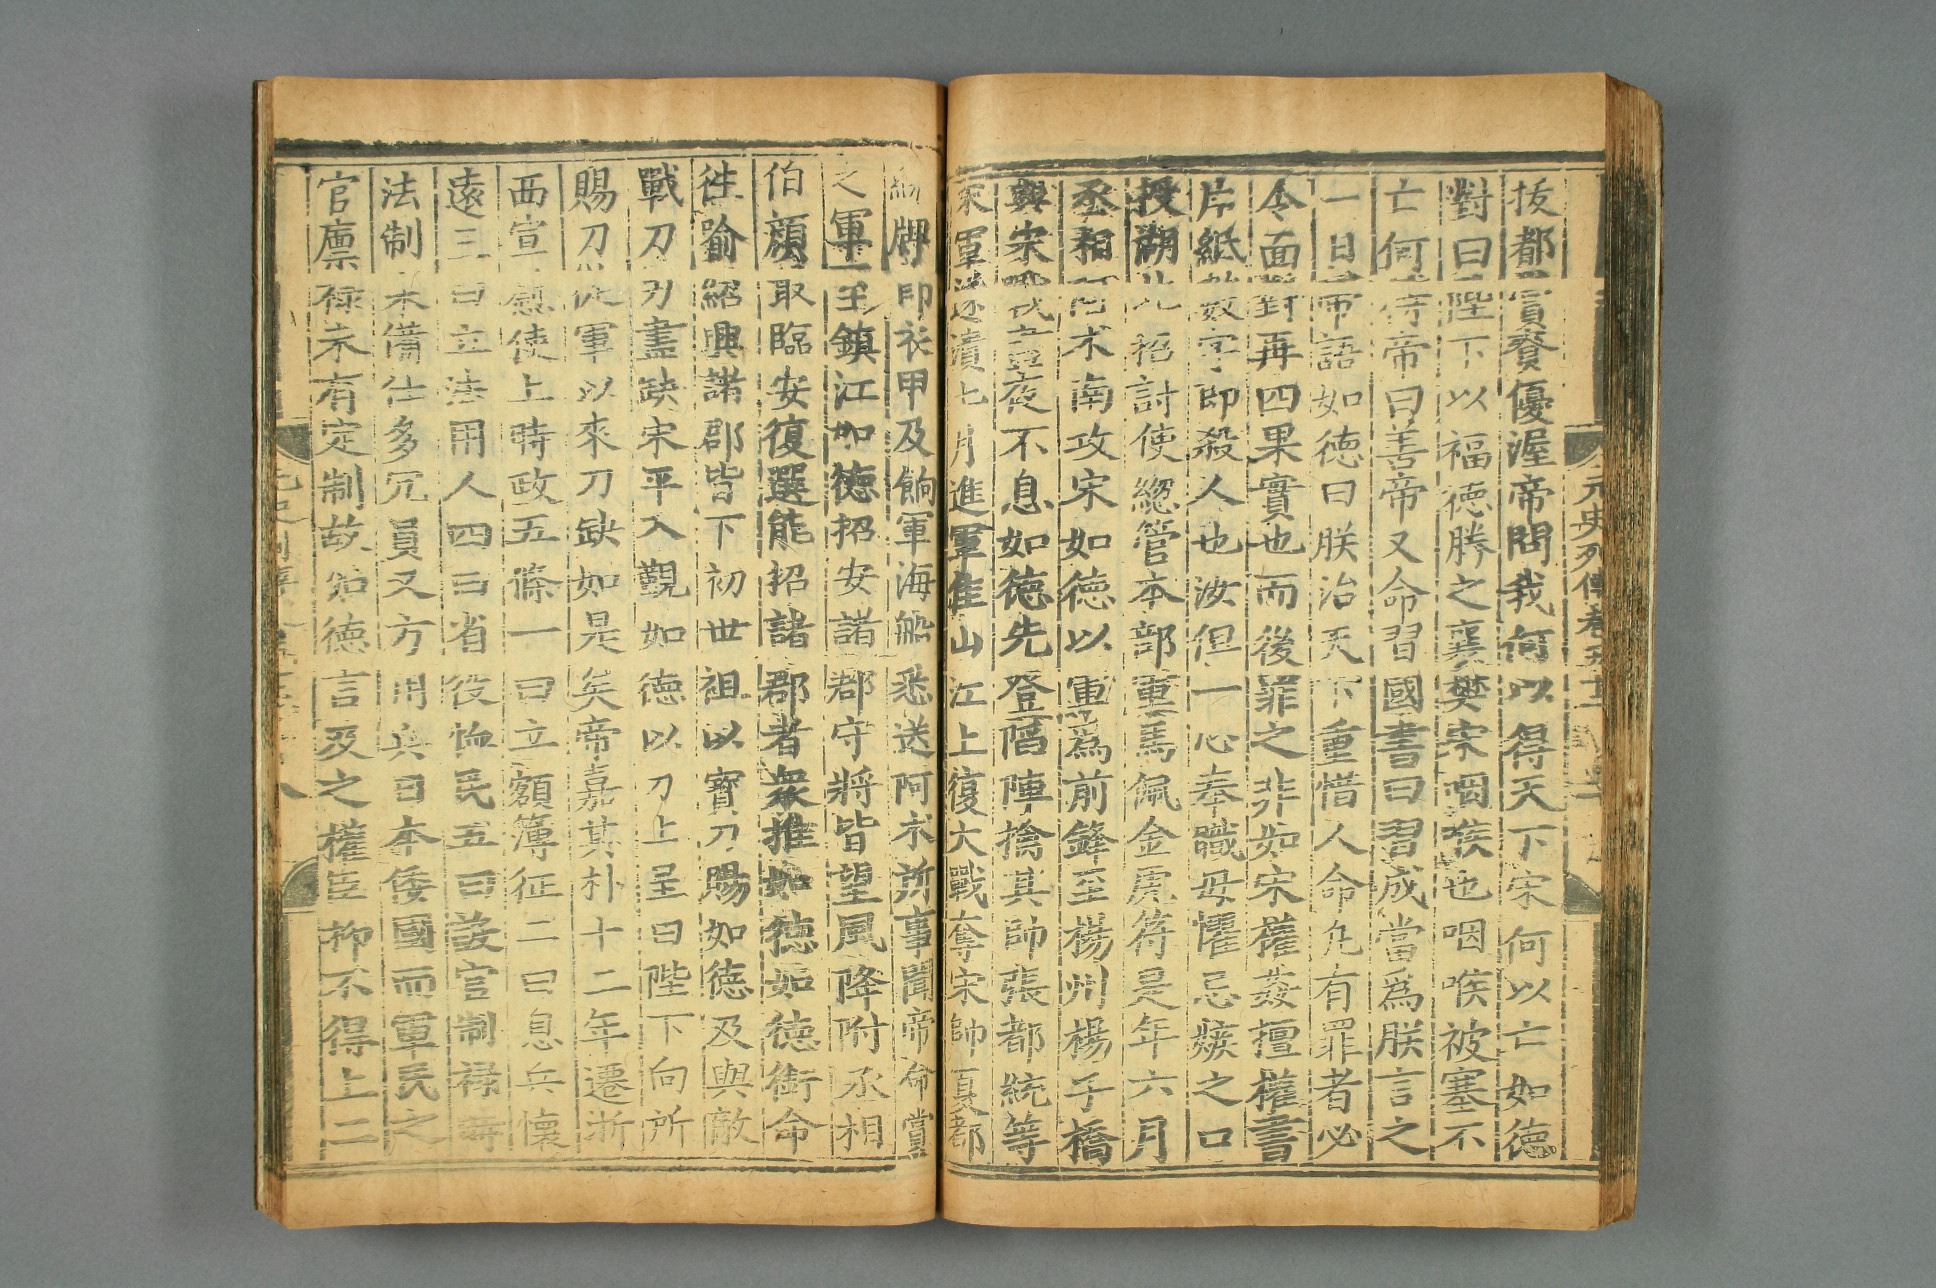 拔都賞賚優渥帝問我何以得天下宋何以亡如德
對曰陛下以福德勝之襄樊宋咽喉也咽喉被塞不
亡何待帝曰善帝又命習國書曰習成當爲朕言之
一日帝語如德曰朕治天下重惜人命凡有罪者必
令面對再四果實也而後罪之非如宋權姦擅權書
片紙數字即殺人也汝但一心奉職毋懼忌嫉之口
授湖北招討使緫管本部軍馬佩金虎符是年六月
丞相阿术南攻宋如德以軍爲前鋒至楊州楊子橋
與宋戰晝夜不息如德先登陷陣擒其帥張都統等
宋軍遂潰七月進軍焦山江上復大戰奪宋帥夏都
統牌印衣甲及餉軍海船悉送阿术所事聞帝命賞
之軍至鎮江如德招安諸郡守將皆望風降附丞相
伯顏取臨安復選能招諸郡者衆推如德如德銜命
徃諭紹興諸郡皆下初世祖以寳刀賜如德及與敵
戰刀刃盡缺宋平入覲如德以刀上呈曰陛下向所
賜刀從軍以來刀缺如是矣帝嘉其朴十二年遷浙
西宣慰使上時政五條一曰立額簿征二曰息兵懷
遠三曰立法用人四曰省役恤民五曰設官制禄時
法制未備仕多冗員又方用兵日本倭國而軍民之
官廪禄未有定制故如德言及之權臣抑不得上二
元史列傳卷五十二